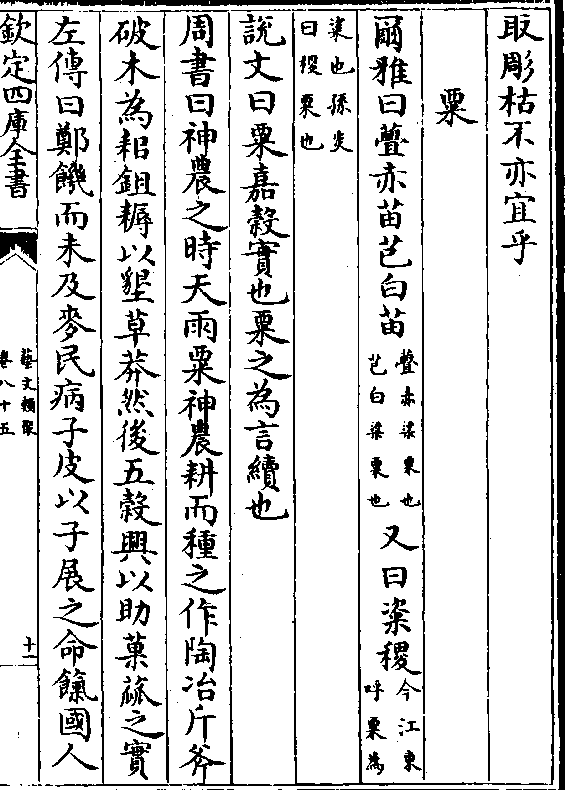 取彫枯不亦宜乎
粟
爾雅曰亹赤苗芑白苗亹赤梁粟也芑白梁粟也又曰粢稷今江東呼粟為
粢也孫炎曰稷粟也
說文曰粟嘉穀實也粟之為言續也
周書曰神農之時天雨粟神農耕而種之作陶冶斤斧
破木為耜鉏耨以墾草莽然後五穀興以助菓蓏之實
左傳曰鄭饑而未及麥民病子皮以子展之命餼國人
欽定四庫全書
藝文類聚
卷八十五
十一